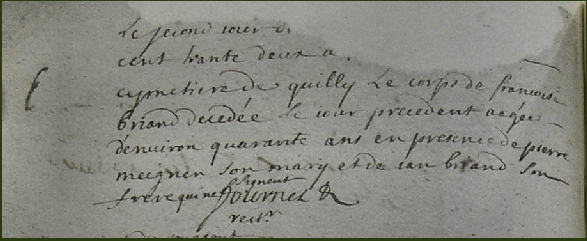 Le second iour d
cent trante deux a
cymetiere de quilly Le corps de francoise
briand decedée le iour precedent aagée
denuiron quarante ans en presence de pierre
meignen son mary et de ian briand son
frere qui ne signent Journel
rect^r